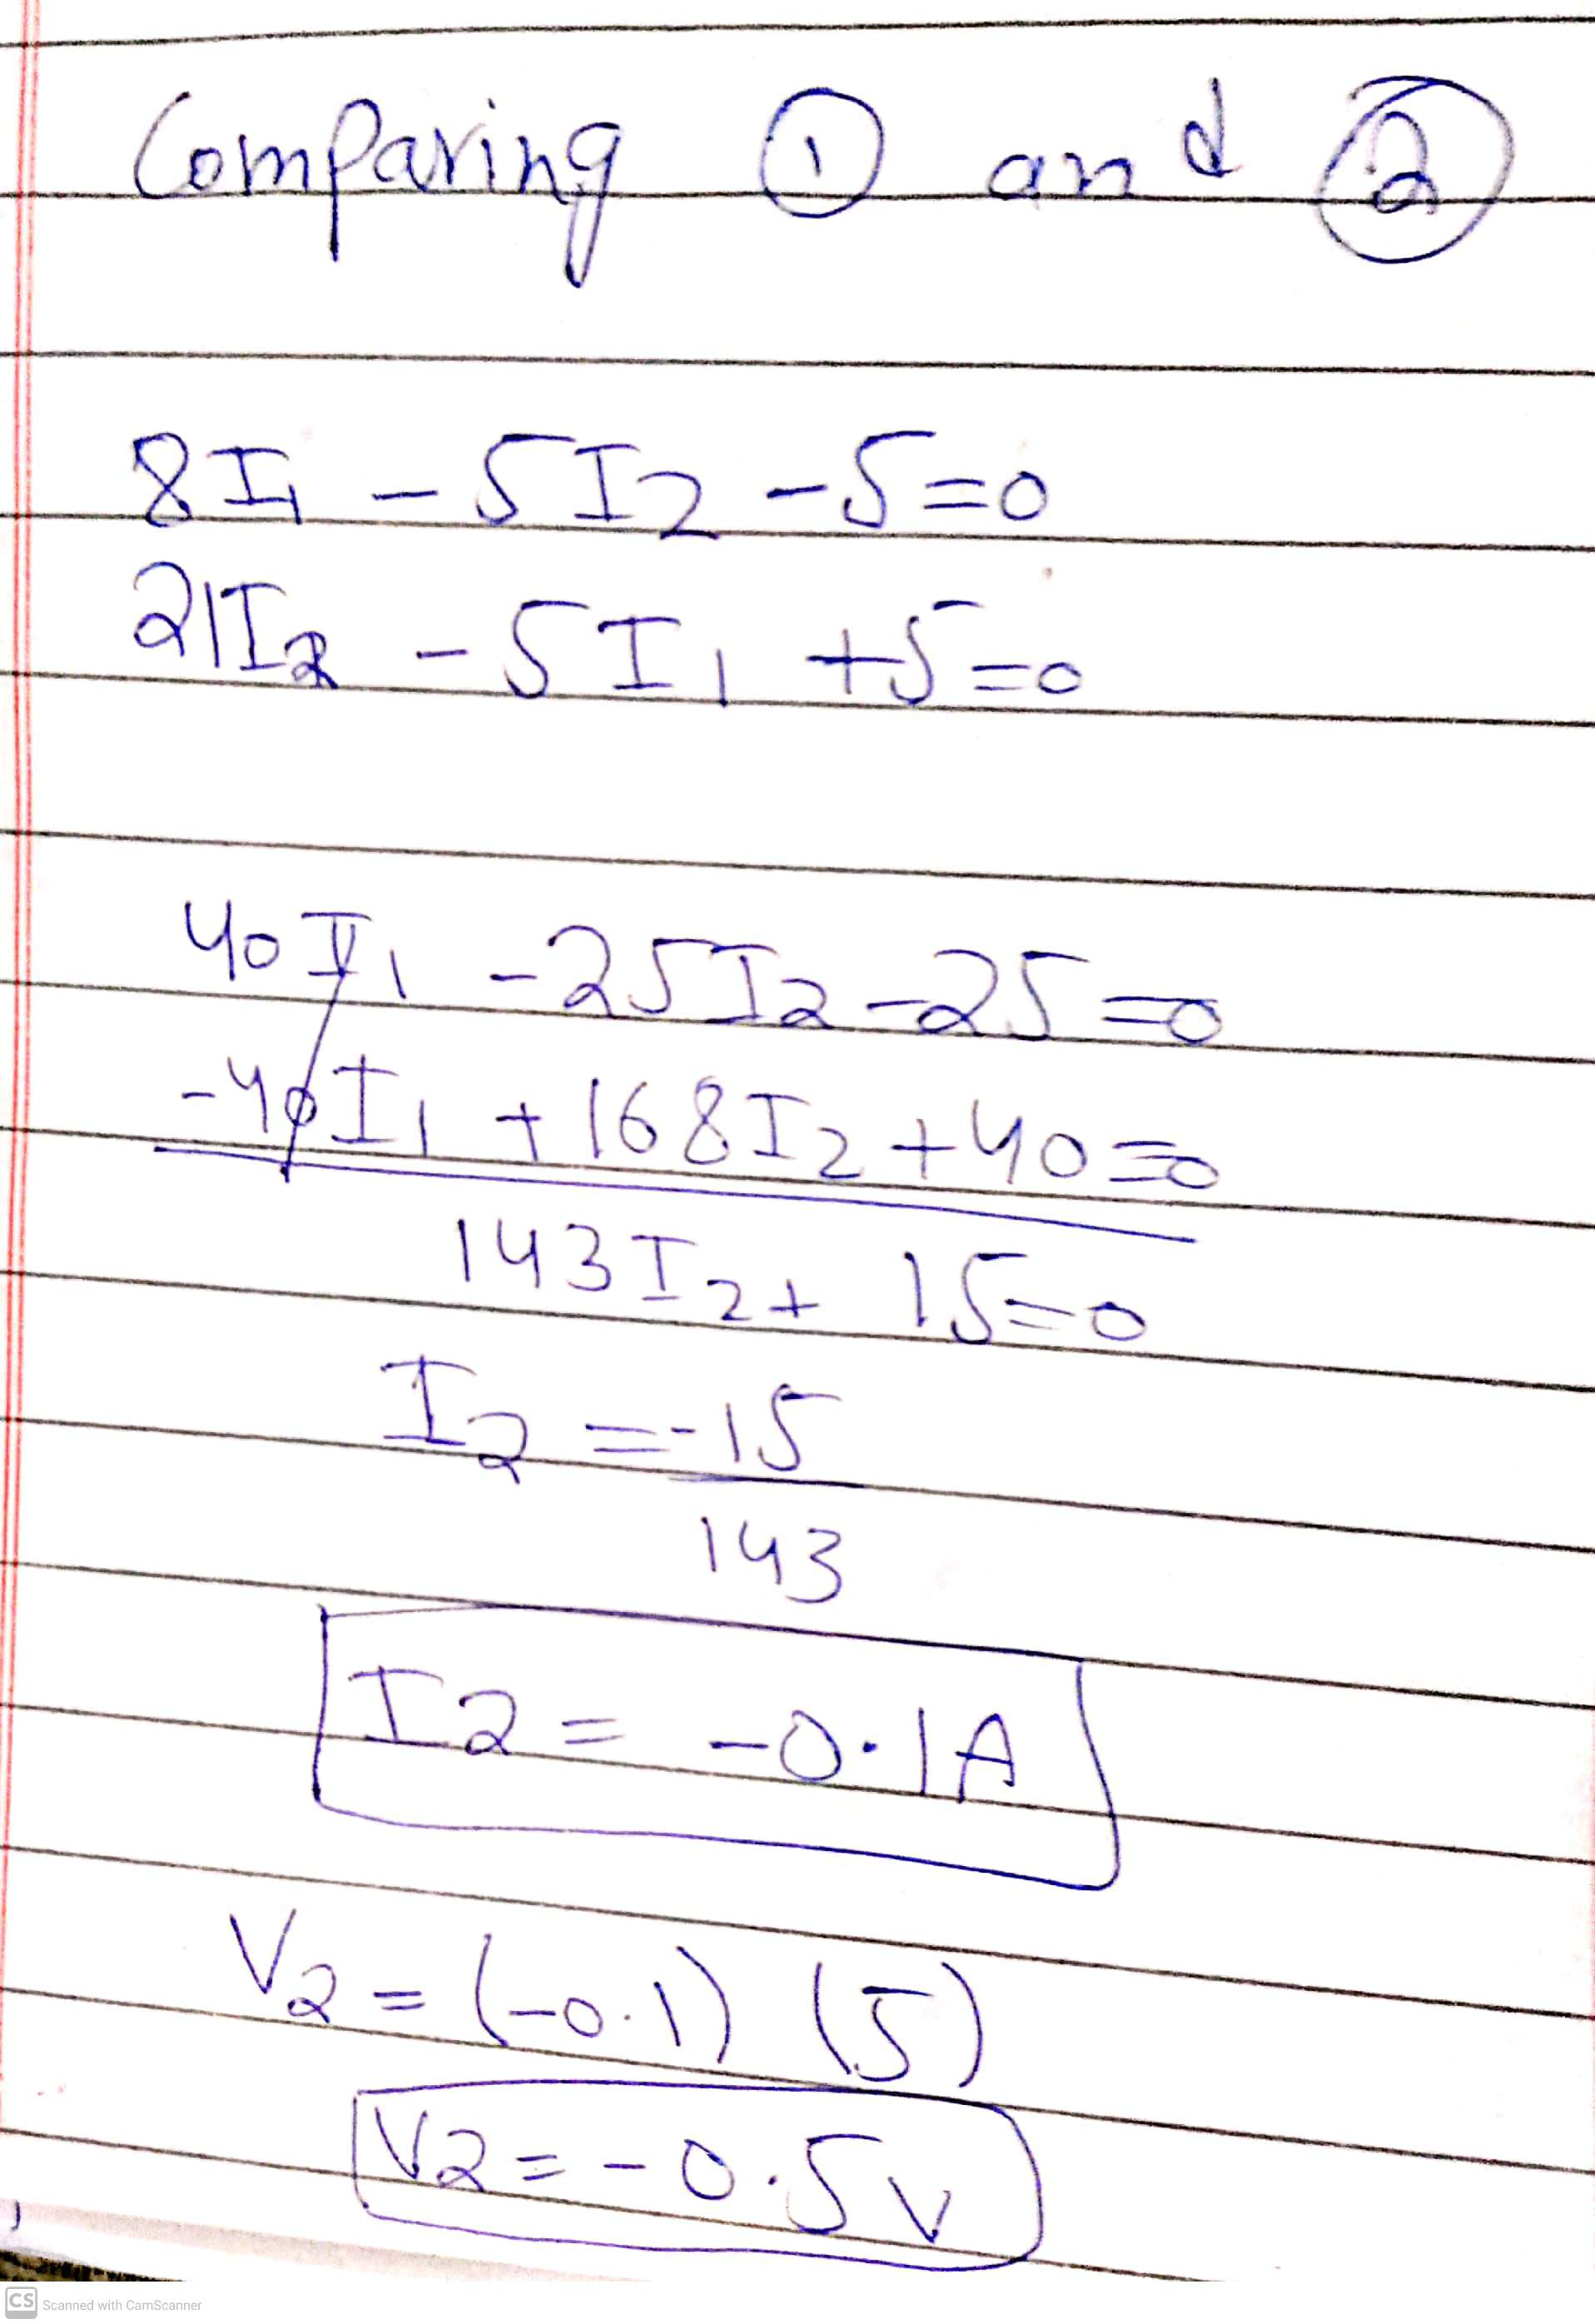 Comparing ① and ②
8I1 - 5I2 - 5 = 0
21I2 - 5I1 + 5 = 0
40I1 - 25I2 - 25 = 0
-40I1 + 168I2 + 40 = 0
143I2 + 15 = 0
I2 = -15
143
I2 = -0.1A
V2 = (-0.1) (5)
V2 = -0.5v
CS Scanned with CamScanner